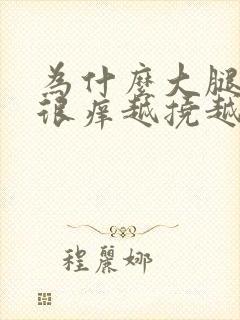 為什麼大腿
很痒越撓越
程麗娜